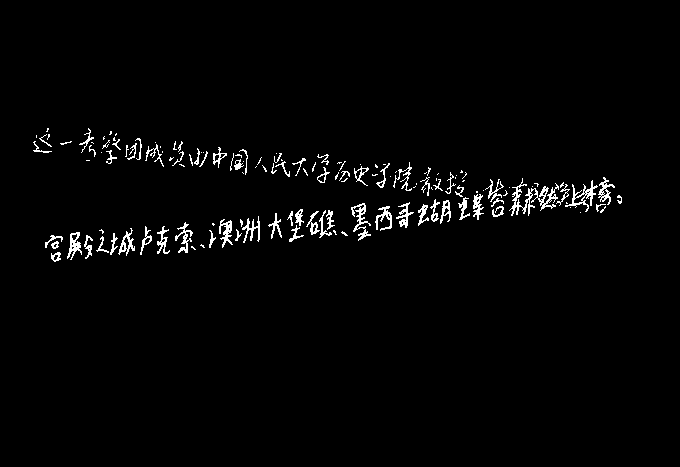 这一考察团成员由中国人民大学历史学院教授、
宫殿之城卢克索、澳洲大堡礁、墨西哥蝴蝶